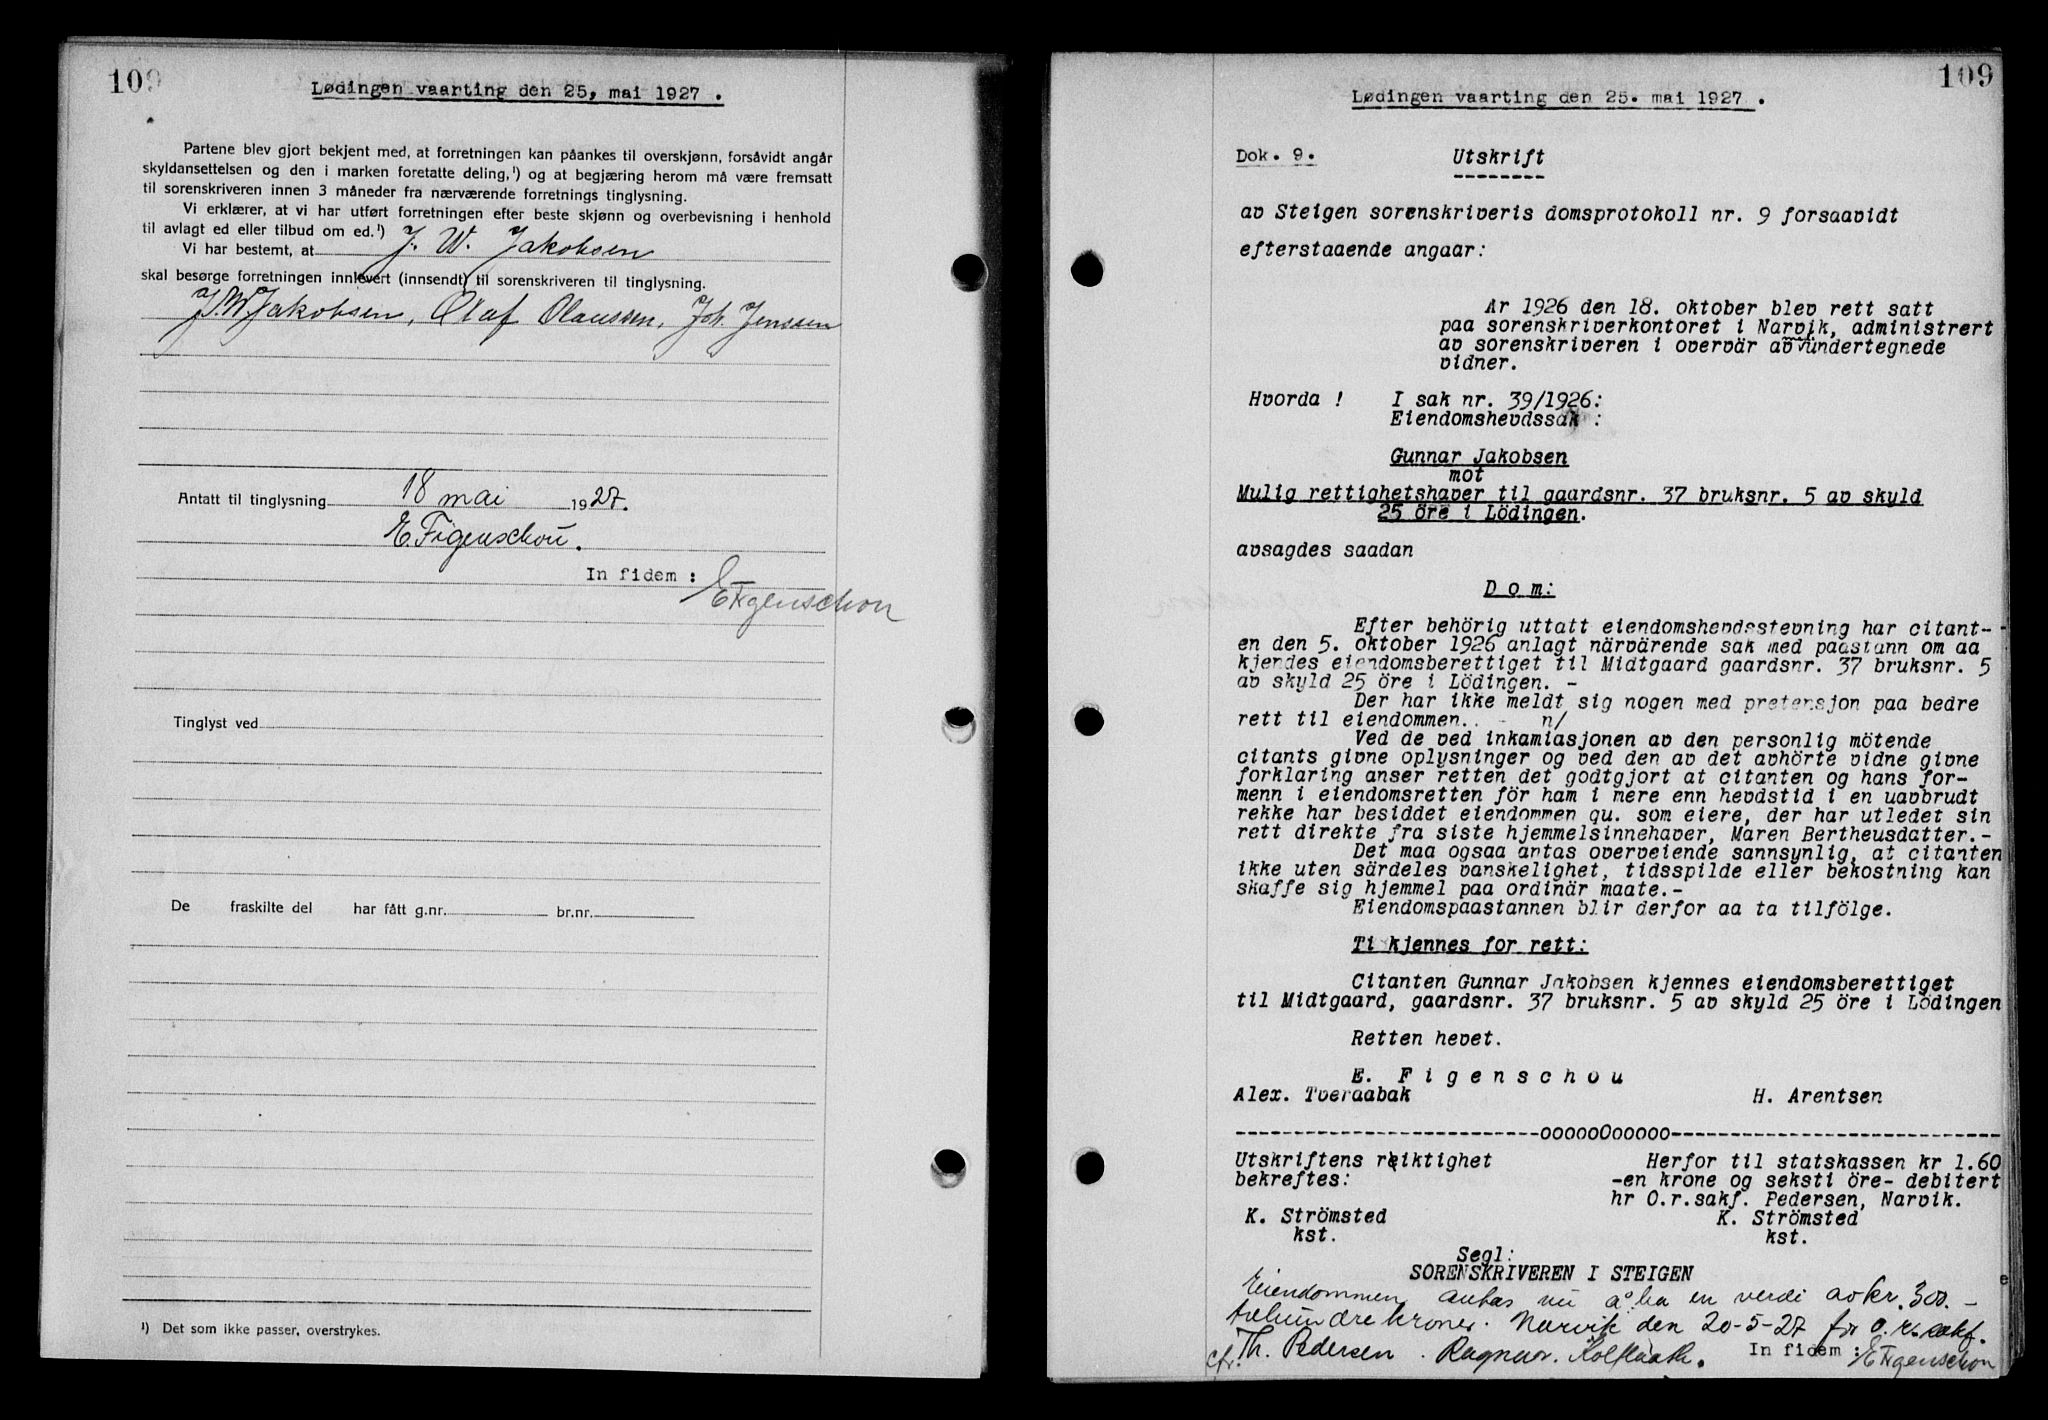 109
Lødingen vaarting den 25, mai 1927 .
Partene blev gjort bekjent med, at forretningen kan påankes til overskjønn, forsåvidt angår
skyldansettelsen og den i marken foretatte deling,¹) og at begjæring herom må være fremsatt
til sorenskriveren innen 3 måneder fra nærværende forretnings tinglysning.
Vi erklærer, at vi har utført forretningen efter beste skjønn og overbevisning i henhold
til avlagt ed eller tilbud om ed.¹)
Vi har bestemt, at J. W. Jakobsen
skal besørge forretningen innlevert (innsendt) til sorenskriveren til tinglysning.
J. W. Jakobsen, Olaf Olaussen, Joh. Jenssen
Antatt til tinglysning 18 mai 1927.
E Figenschou.
In fidem :
EFigenschou
Tinglyst ved
De fraskilte del har fått g.nr. br.nr.
¹) Det som ikke passer, overstrykes.
109
Lødingen vaarting den 25. mai 1927 .
Dok. 9. Utskrift
av Steigen sorenskriveris domsprotokoll nr. 9 forsaavidt
efterstaaende angaar:
Ar 1926 den 18. oktober blev rett satt
paa sorenskriverkontoret i Narvik, administrert
av sorenskriveren i overvär av undertegnede
vidner.
Hvorda ! I sak nr. 39/1926:
Eiendomshevdssak :
Gunnar Jakobsen
mot
Mulig rettighetshaver til gaardsnr. 37 bruksnr. 5 av skyld
25 öre i Lödingen.
avsagdes saadan
D o m:
Efter behörig uttatt eiendomshevdsstevning har citant-
en den 5. oktober 1926 anlagt närvärende sak med paastann om aa
kjendes eiendomsberettiget til Midtgaard gaardsnr. 37 bruksnr. 5
av skyld 25 öre i Lödingen. -
Der har ikke meldt sig nogen med pretensjon paa bedre
rett til eiendommen.. - n/
Ved de ved inkamiasjonen av den personlig mötende
citants givne oplysninger og ved den av det avhörte vidne givne
forklaring anser retten det godtgjort at citanten og hans for-
menn i eiendomsretten för ham i mere enn hevdstid i en uavbrudt
rekke har besiddet eiendommen qu. som eiere, der har utledet sin
rett direkte fra siste hjemmelsinnehaver, Maren Bertheusdatter.-
Det maa ogsaa antas overveiende sannsynlig, at citanten
ikke uten särdeles vanskelighet, tidsspilde eller bekostning kan
skaffe sig hjemmel paa ordinär maate.-
Eiendomspaastannen blir derfor aa ta tilfölge.
Ti kjennes for rett:
Citanten Gunnar Jakobsen kjennes eiendomsberettiget
til Midtgaard, gaardsnr. 37 bruksnr. 5 av skyld 25 öre i Lödingen
Retten hevet.
E. F i g e n s c h o u
Alex. Tveraabak H. Arentsen
------------------------oooooOooooo--------------------------
Utskriftens reiktighet Herfor til statskassen kr 1.60
bekreftes: -en krone og seksti öre- debitert
hr O.r.sakf. Pedersen, Narvik.
K. Strömsted K. Strömsted
kst. kst.
Segl:
SORENSKRIVEREN I STEIGEN
Eiendommen antas nu å ha en verdi av kr. 300. -
trehundre kroner. Narvik den 20-5-27 for o.r.sakf.
cfr. Th. Pedersen . Ragnar. Kolflaath. In fidem :
EFigenschou